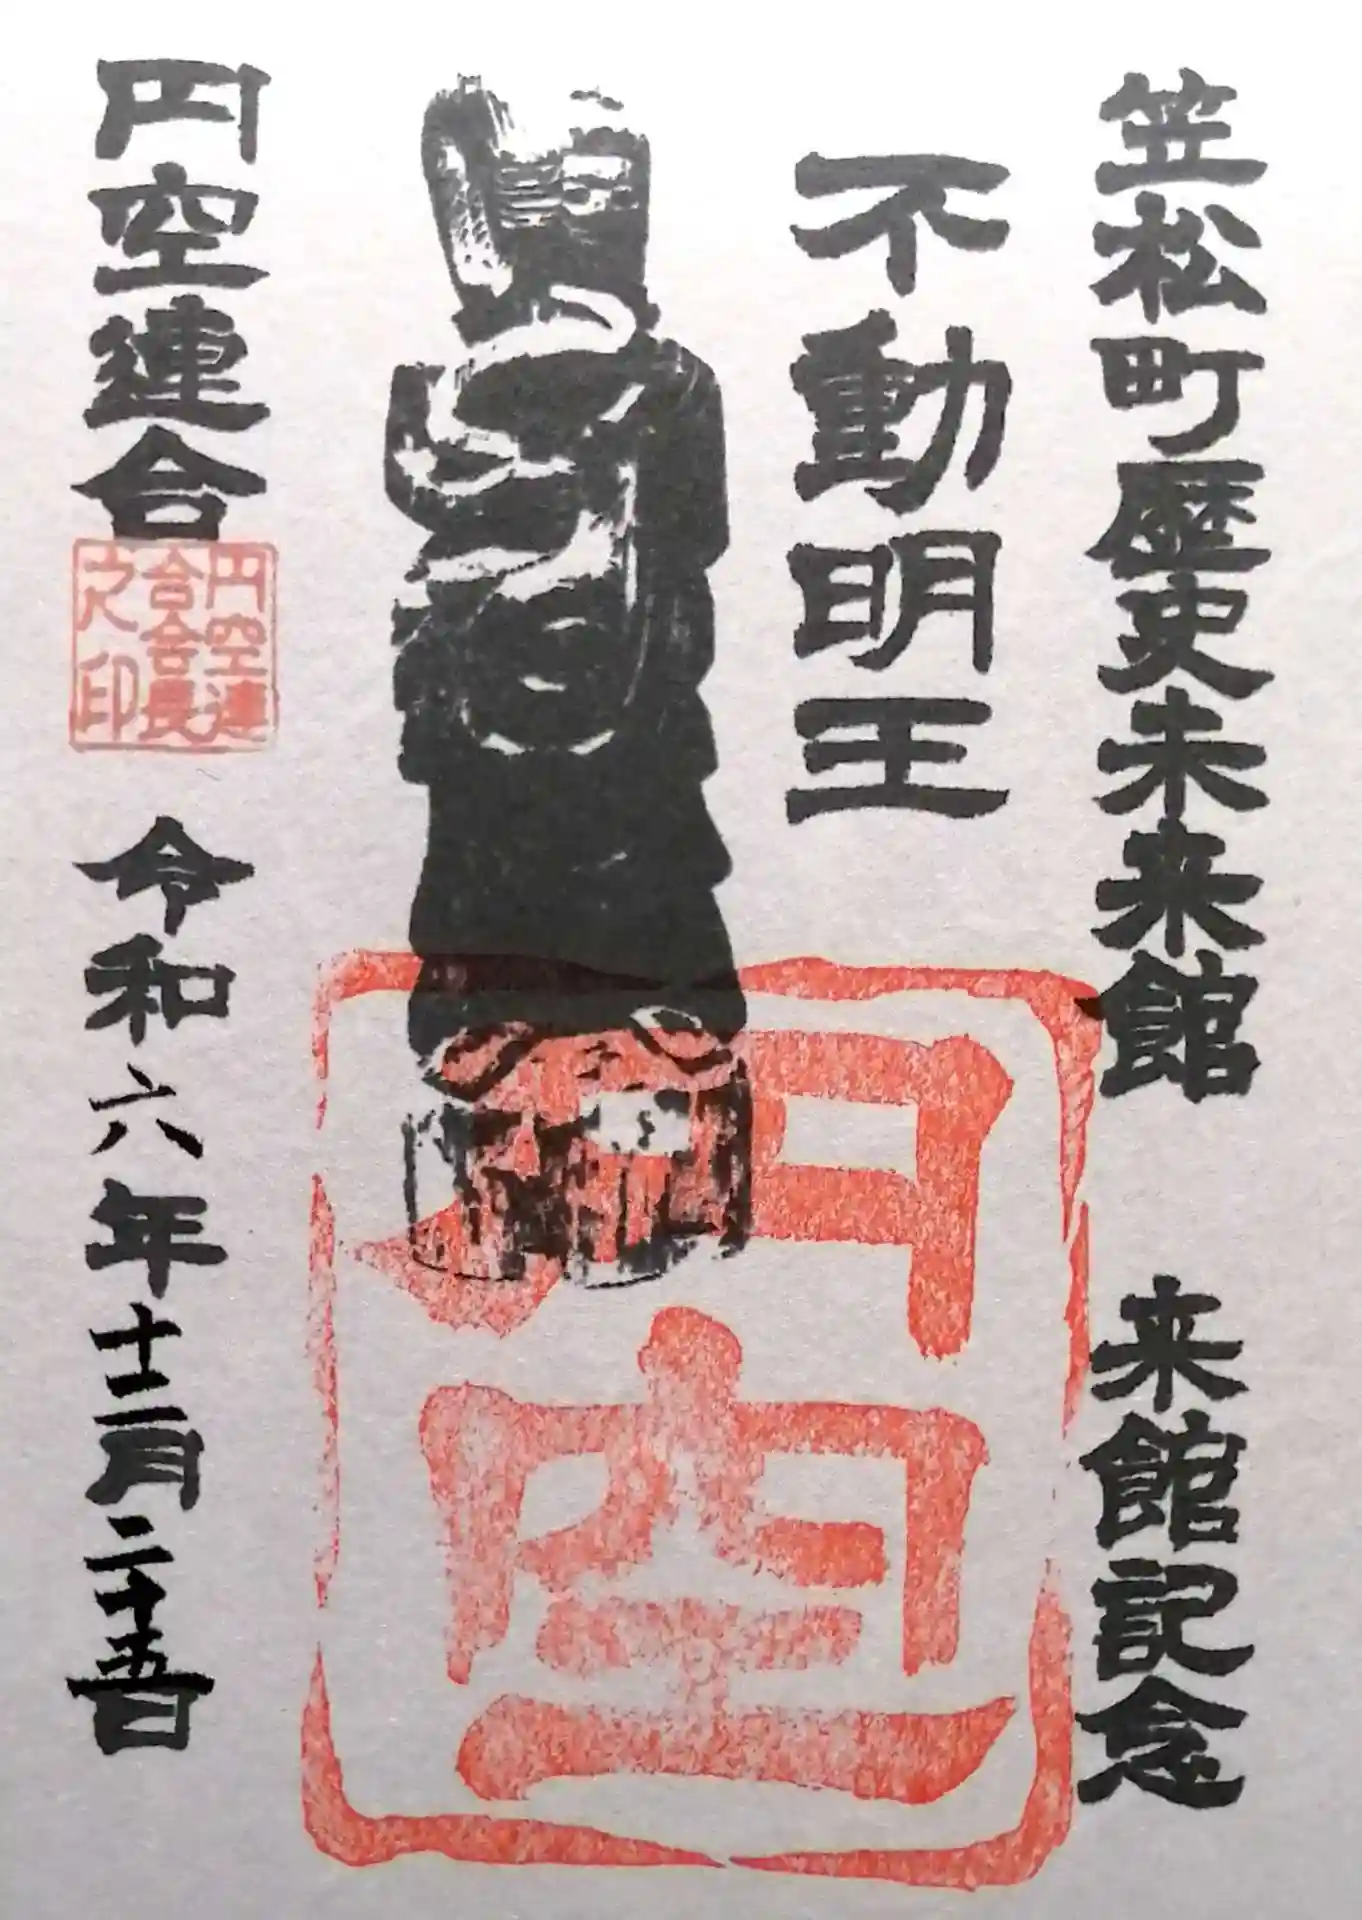 笠松町歴史未来館　来館記念
不動明王
円空
円空連合
円空連
合会長
之印
令和六年十二月二十五日